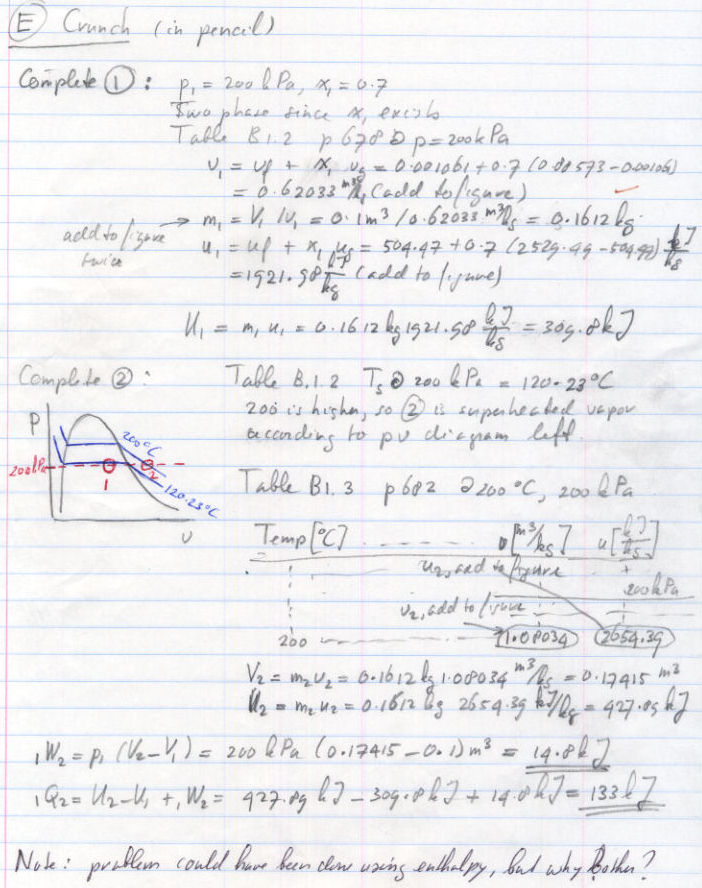 (E) Crunch (in pencil)
Complete ①: p₁ = 200 kPa, x₁ = 0.7
Two phase since x₁ exists
Table B.1.2 p 678 @ p = 200 kPa
v₁ = vf + x₁ vfg = 0.001061 + 0.7 (0.88573 - 0.001061)
= 0.62033 m³/kg (add to figure)
add to figure twice → m₁ = V₁/v₁ = 0.1 m³ / 0.62033 m³/kg = 0.1612 kg
u₁ = uf + x₁ ufg = 504.47 + 0.7 (2529.49 - 504.49) kJ/kg
= 1921.98 kJ/kg (add to figure)
U₁ = m₁ u₁ = 0.1612 kg 1921.98 kJ/kg = 309.8 kJ
Complete ②: Table B.1.2 Ts @ 200 kPa = 120.23°C
200 is higher, so ② is superheated vapor
according to pv diagram left.
P
200°C
200 kPa
1
2
120.23°C
v
Table B1.3 p 682 @ 200°C, 200 kPa
Temp [°C] v [m³/kg] u [kJ/kg]
u₂, add to figure
200 kPa
v₂, add to figure
200 1.08034 2654.39
V₂ = m₂ v₂ = 0.1612 kg 1.08034 m³/kg = 0.17415 m³
U₂ = m₂ u₂ = 0.1612 kg 2654.39 kJ/kg = 427.89 kJ
₁W₂ = p₁ (V₂ - V₁) = 200 kPa (0.17415 - 0.1) m³ = 14.8 kJ
₁Q₂ = U₂ - U₁ + ₁W₂ = 427.89 kJ - 309.8 kJ + 14.8 kJ = 133 kJ
Note: problem could have been done using enthalpy, but why bother?